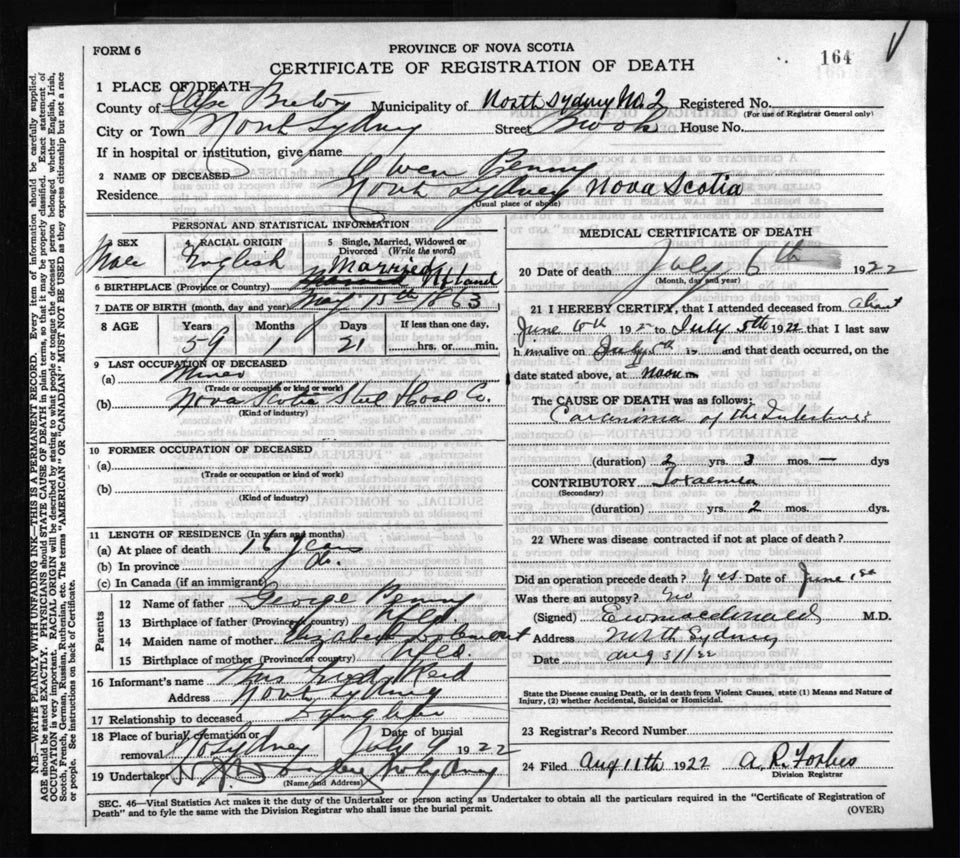 FORM 6
PROVINCE OF NOVA SCOTIA
164
CERTIFICATE OF REGISTRATION OF DEATH
1 PLACE OF DEATH
County of Cape Breton Municipality of North Sydney No. 2 Registered No.
(For use of Registrar General only)
City or Town North Sydney Street Brook House No.
If in hospital or institution, give name
2 NAME OF DECEASED Owen Penny
Residence North Sydney Nova Scotia
(Usual place of abode)
PERSONAL AND STATISTICAL INFORMATION
3 SEX 4 RACIAL ORIGIN 5 Single, Married, Widowed or Divorced (Write the word)
Male English Married
6 BIRTHPLACE (Province or Country) Nfland
7 DATE OF BIRTH (month, day and year) May 15th 1863
8 AGE Years Months Days If less than one day,
59 1 21 hrs. or min.
9 LAST OCCUPATION OF DECEASED
(a) Miner
(Trade or occupation or kind of work)
(b) Nova Scotia Steel & Coal Co.
(Kind of industry)
10 FORMER OCCUPATION OF DECEASED
(a)
(Trade or occupation or kind of work)
(b)
(Kind of industry)
11 LENGTH OF RESIDENCE (In years and months)
(a) At place of death years
(b) In province
(c) In Canada (if an immigrant)
Parents
12 Name of father George Penny
13 Birthplace of father (Province or country) Nfld.
14 Maiden name of mother Elizabeth
15 Birthplace of mother (Province or country) Nfld.
16 Informant's name Mrs Reid
Address North Sydney
17 Relationship to deceased Daughter
18 Place of burial, cremation or removal Date of burial
No Sydney July 9 1922
19 Undertaker
(Name and Address)
MEDICAL CERTIFICATE OF DEATH
20 Date of death July 6th 1922
(Month, day and year)
21 I HEREBY CERTIFY, that I attended deceased from about
June 192 to July 5th 1922 that I last saw
h im alive on July 5th 19 and that death occurred, on the
date stated above, at noon m
The CAUSE OF DEATH was as follows:
Carcinoma of the Intestines
(duration) 2 yrs. 3 mos. — dys
CONTRIBUTORY Toxaemia
(Secondary)
(duration) yrs. 2 mos. dys.
22 Where was disease contracted if not at place of death?
Did an operation precede death? yes Date of June
Was there an autopsy? No
(Signed) Macdonald M.D.
Address North Sydney
Date Aug
State the Disease causing Death, or in death from Violent Causes, state (1) Means and Nature of
Injury, (2) whether Accidental, Suicidal or Homicidal.
23 Registrar's Record Number
24 Filed Aug 11th 1922 A. R. Forbes
Division Registrar
SEC. 46—Vital Statistics Act makes it the duty of the Undertaker or person acting as Undertaker to obtain all the particulars required in the "Certificate of Registration of
Death" and to fyle the same with the Division Registrar who shall issue the burial permit.
(OVER)
N.B.—WRITE PLAINLY WITH UNFADING INK—THIS IS A PERMANENT RECORD. Every item of information should be carefully supplied.
AGE should be stated EXACTLY. PHYSICIANS should STATE CAUSE OF DEATH in plain terms, so that it may be properly classified. Exact statement of
OCCUPATION is very important. RACIAL ORIGIN will be described by stating to what people or tongue the deceased person belonged whether English, Irish,
Scotch, French, German, Russian, Ruthenian, etc. The terms "AMERICAN" OR "CANADIAN" MUST NOT BE USED as they express citizenship but not a race
or people. See instructions on back of Certificate.